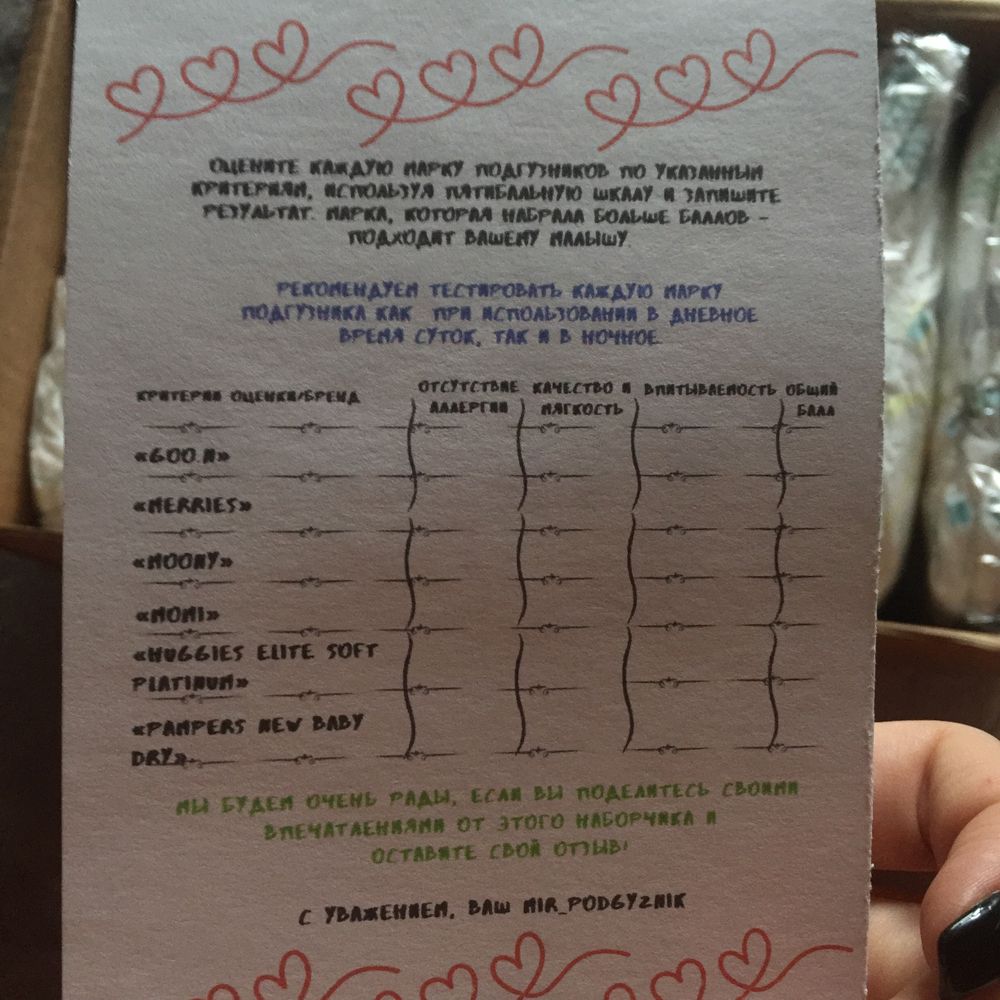 ОЦЕНИТЕ КАЖДУЮ МАРКУ ПОДГУЗНИКОВ ПО УКАЗАННЫМ
КРИТЕРИЯМ, ИСПОЛЬЗУЯ ПЯТИБАЛЬНУЮ ШКАЛУ И ЗАПИШИТЕ
РЕЗУЛЬТАТ. МАРКА, КОТОРАЯ НАБРАЛА БОЛЬШЕ БАЛЛОВ -
ПОДХОДИТ ВАШЕМУ МАЛЫШУ.
РЕКОМЕНДУЕМ ТЕСТИРОВАТЬ КАЖДУЮ МАРКУ
ПОДГУЗНИКА КАК ПРИ ИСПОЛЬЗОВАНИИ В ДНЕВНОЕ
ВРЕМЯ СУТОК, ТАК И В НОЧНОЕ.
КРИТЕРИИ ОЦЕНКИ/БРЕНД ОТСУТСТВИЕ КАЧЕСТВО И ВПИТЫВАЕМОСТЬ ОБЩИЙ
АЛЛЕРГИИ МЯГКОСТЬ БАЛЛ
«GOO.N»
«MERRIES»
«MOONY»
«MOMI»
«HUGGIES ELITE SOFT
PLATINUM»
«PAMPERS NEW BABY
DRY»
МЫ БУДЕМ ОЧЕНЬ РАДЫ, ЕСЛИ ВЫ ПОДЕЛИТЕСЬ СВОИМИ
ВПЕЧАТЛЕНИЯМИ ОТ ЭТОГО НАБОРЧИКА И
ОСТАВИТЕ СВОЙ ОТЗЫВ!
С УВАЖЕНИЕМ, ВАШ MIR_PODGYZNIK